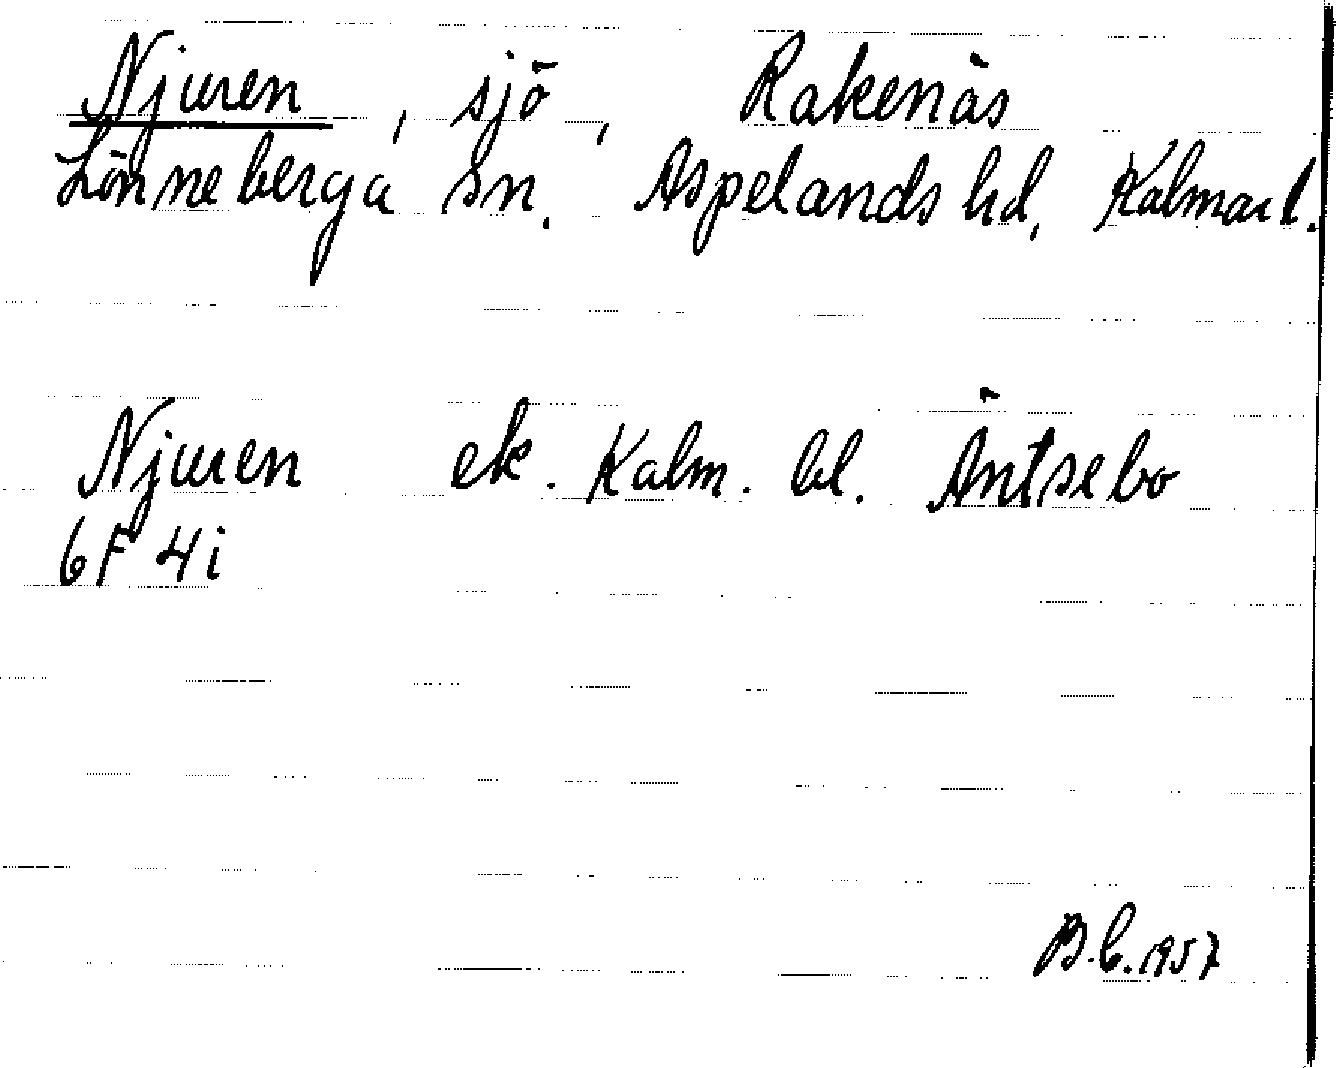 Njuren, sjö, Rakenäs
Lönneberga sn. Aspelands hd, Kalmar l.
Njuren ek. Kalm. bl. Äntsebo
6F 4i
B.C. 1957